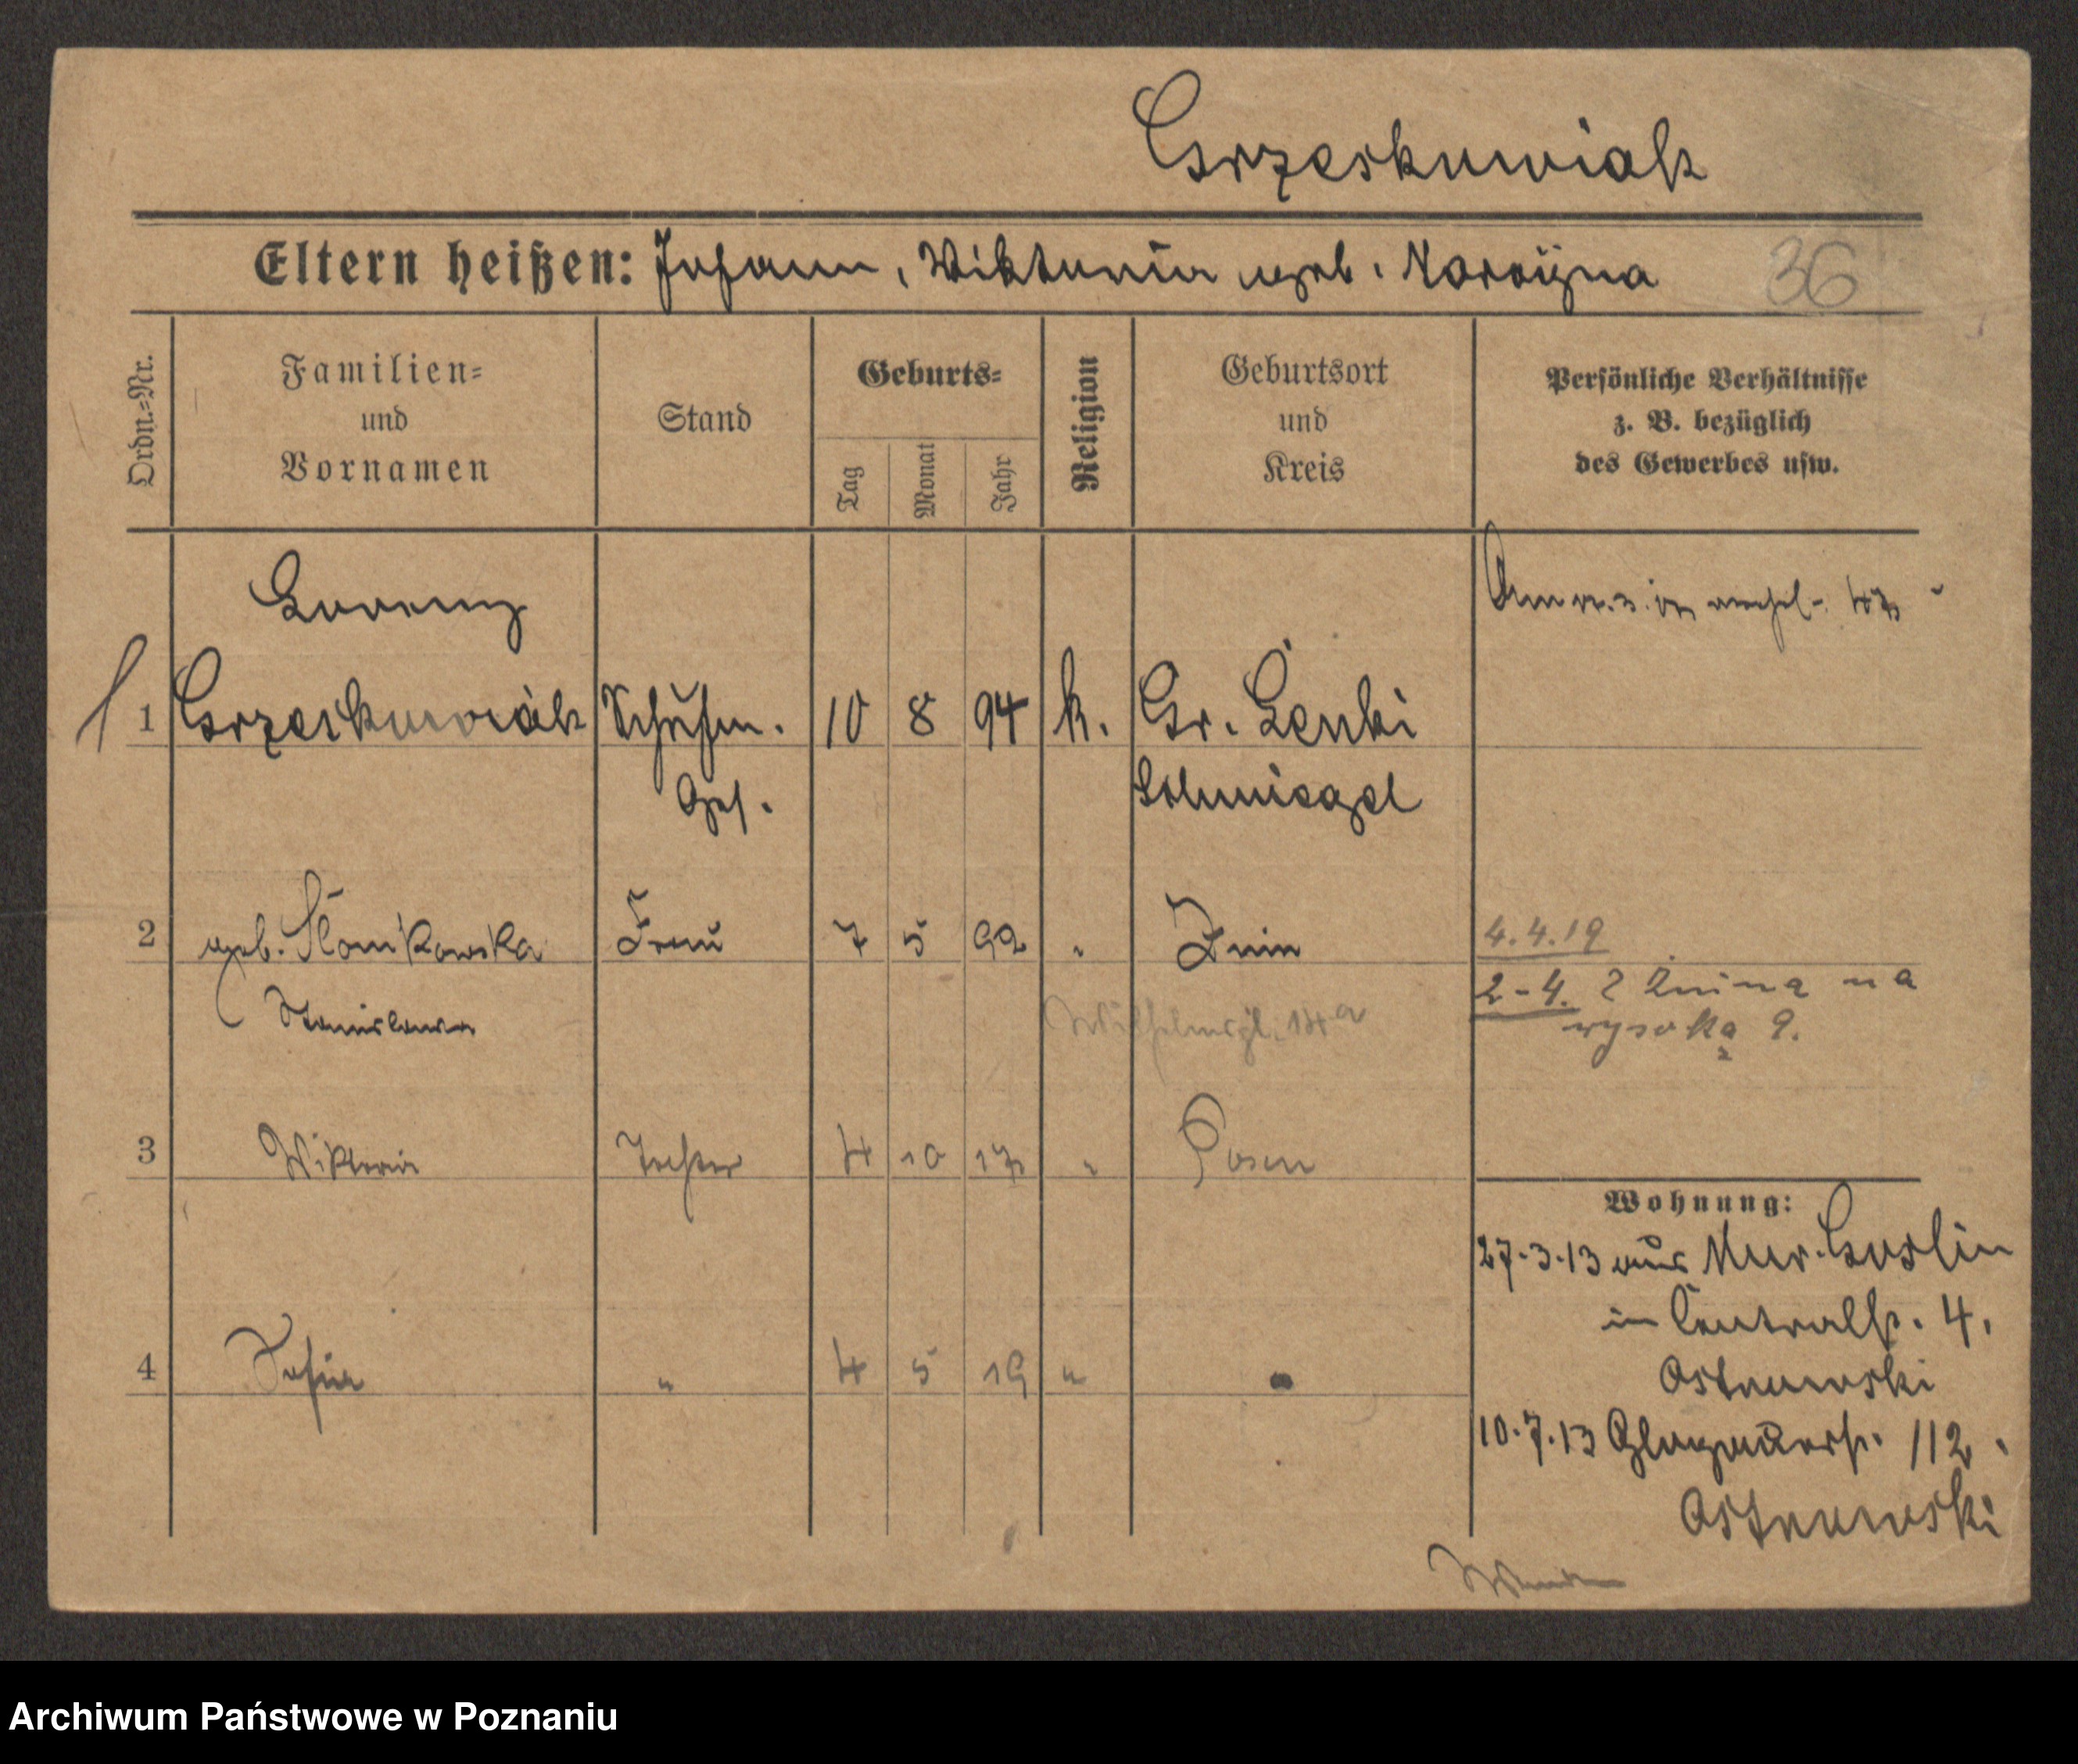 Grzeskowiak
Eltern heißen: Johann, Wiktoria geb. Noroÿna
36
Ordn.-Nr.
Familien-
und
Vornamen
Stand
Geburts-
Tag
Monat
Jahr
Religion
Geburtsort
und
Kreis
Persönliche Verhältnisse
z. B. bezüglich
des Gewerbes usw.
Lorenz
1 Grzeskowiak Schuhm. 10 8 94 k. Gr. Lenki
Ges. Schmiegel
2 geb. Słomkowska Frau 7 5 92 " Znin 4.4.19
Stanislawa Wilhelmspl. 14a 2-4. z Żnina na
wysoką 9.
3 Wiktoria Tochter 4 10 17 " Posen
Wohnung:
27.3.13 aus Mur. Goslin
in Centralstr. 4.
Ostrowski
4 Sofia " 4 5 19 " "
10.7.13 Glogauerstr. 112.
Ostrowski
Archiwum Państwowe w Poznaniu